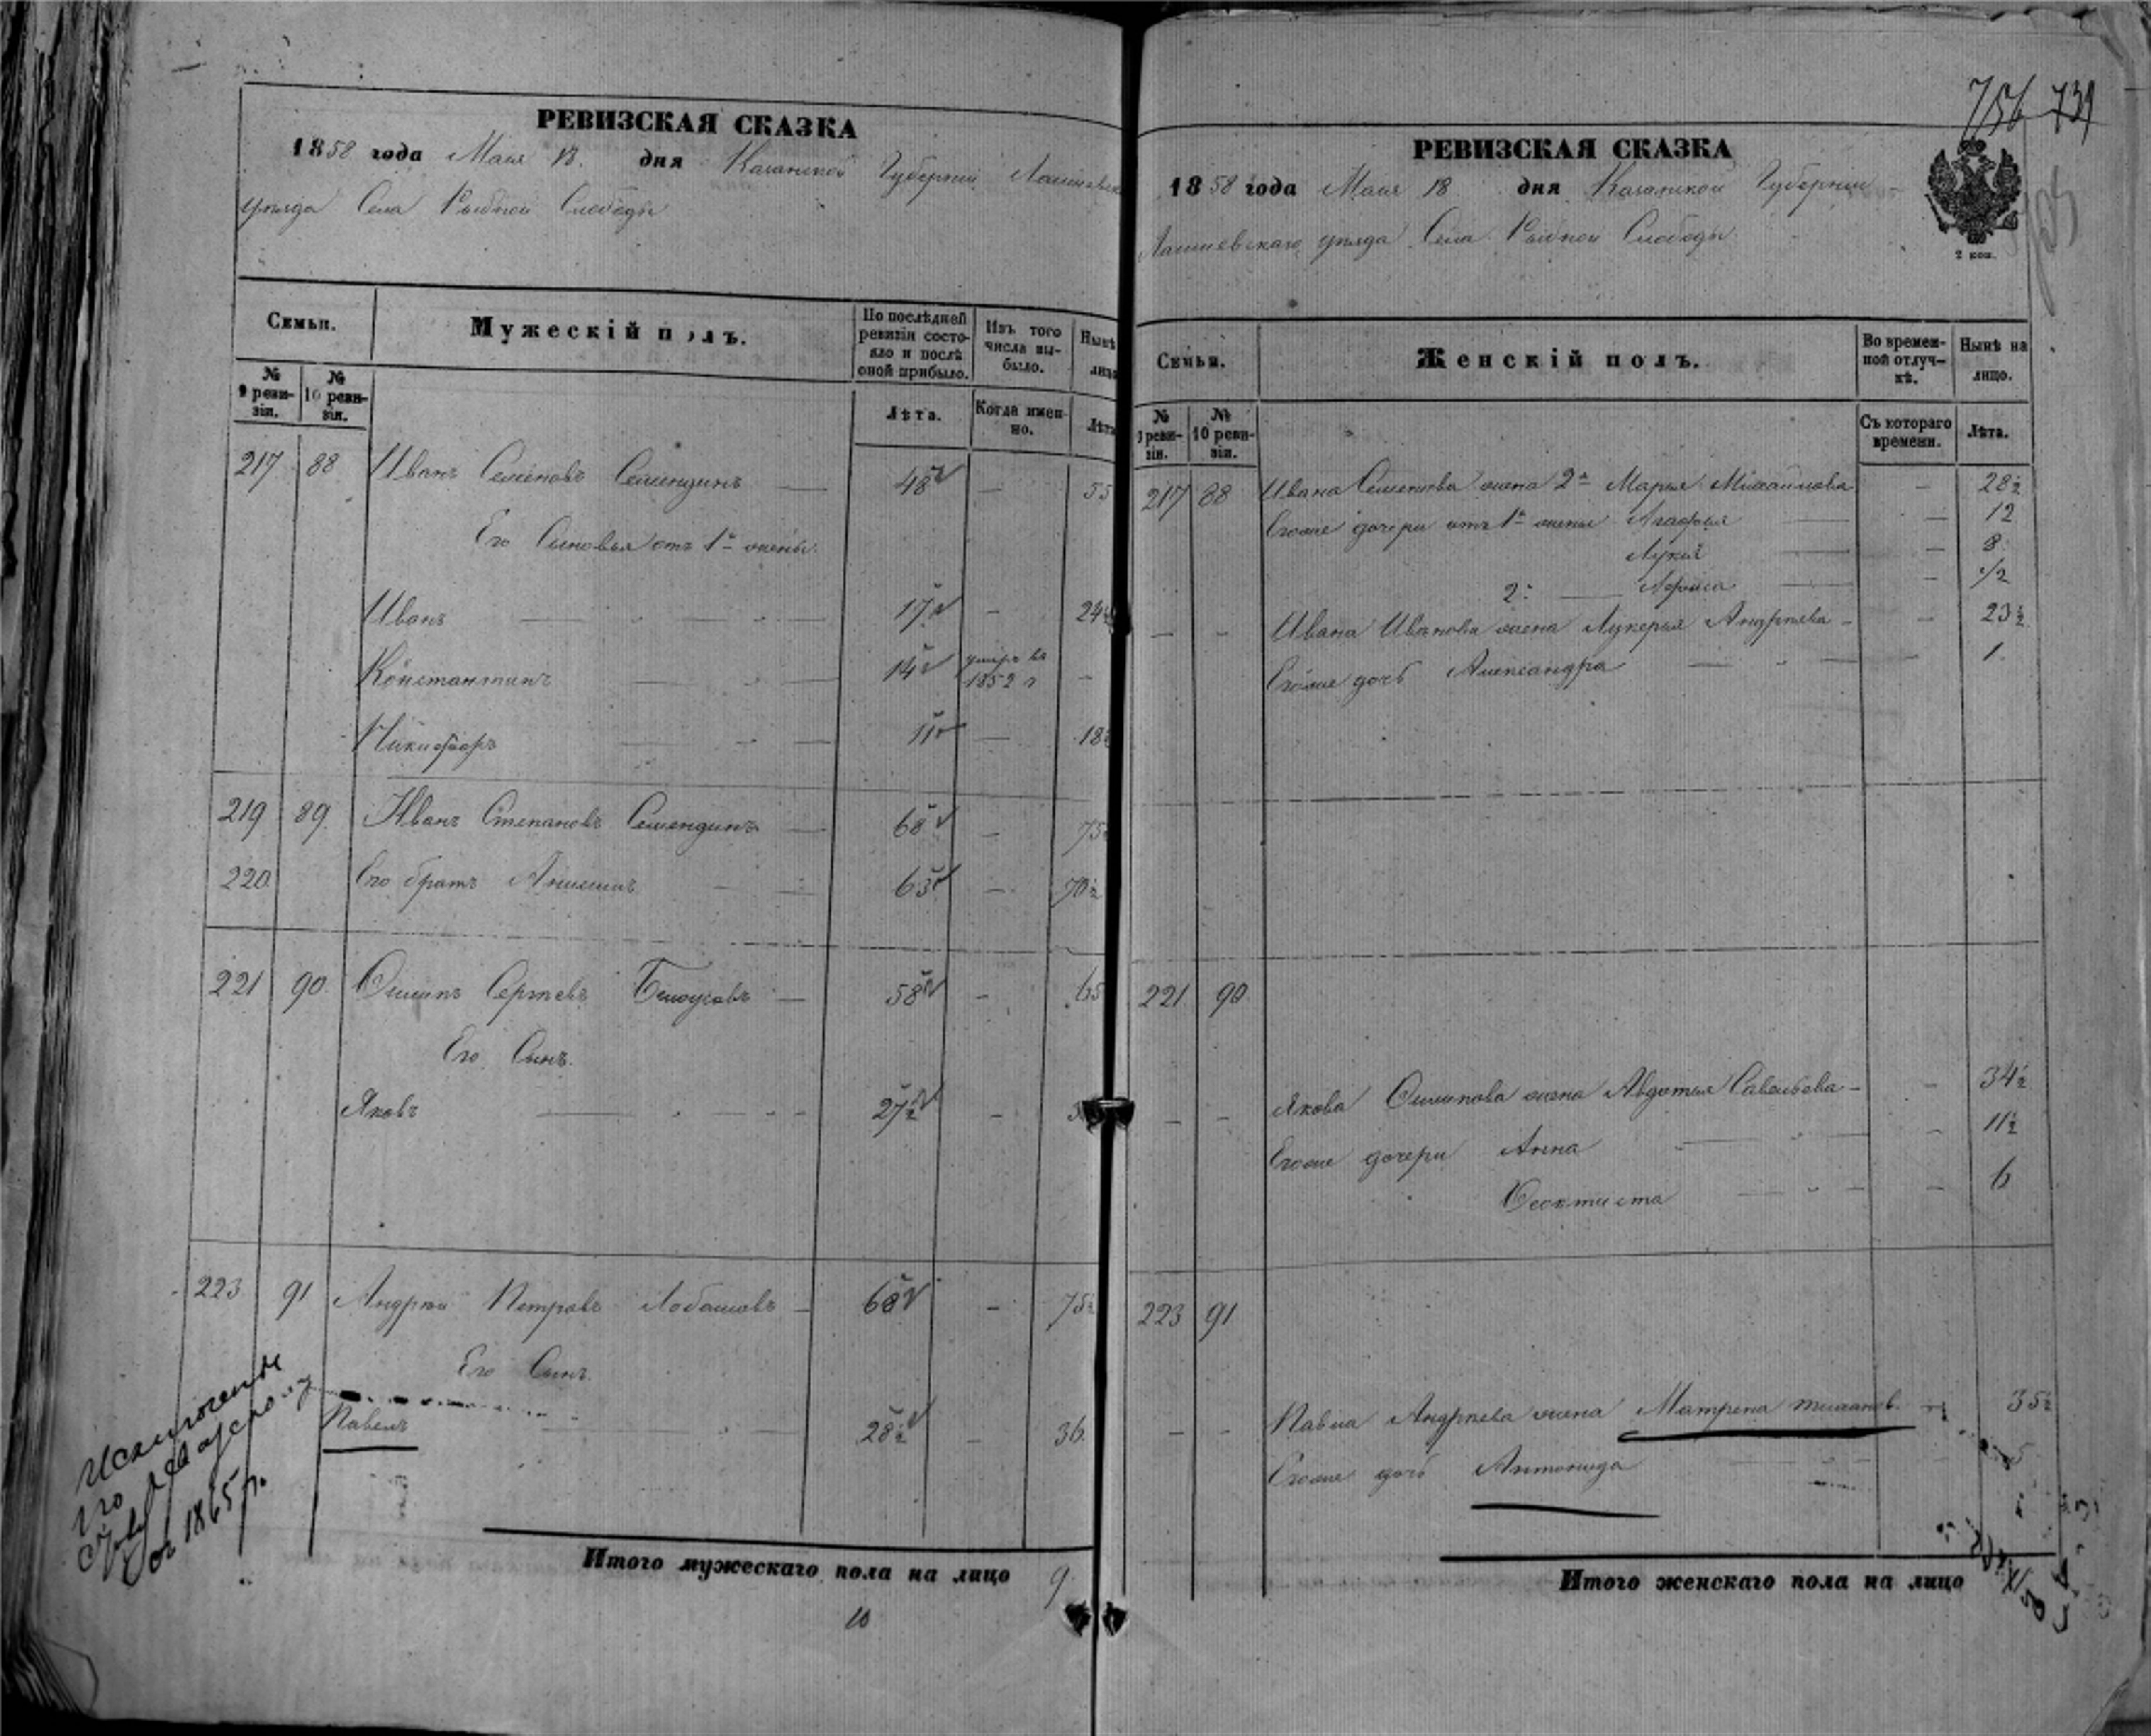 РЕВИЗСКАЯ СКАЗКА
1858 года Мая 18. дня Казанской Губернии Лаишевск
уѣзда Села Рыбной Слободы
Семьи.
Мужескій полъ.
По послѣдней ревизіи состо-
яло и послѣ оной прибыло.
Изъ того числа вы-
было.
Нынѣ
лицо
№ 9 реви-
зіи.
№ 10 реви-
зіи.
Лѣта.
Когда имен-
но.
Лѣта
217 88 Иванъ Семеновъ Семендинъ — 48 — 55
Его Сыновья отъ 1й жены.
Иванъ 17 — 24
Константинъ 14 умеръ въ 1852 г —
Никифоръ 11 — 18
219 89 Иванъ Степановъ Семендинъ — 68 — 75
220. Его братъ 63 — 70½
221 90. Осипъ Сергѣевъ Бѣлоусовъ — 58 — 65
Его Сынъ.
Яковъ 27½ —
223 91 Андрей Петровъ Лобашовъ — 68 — 75½
Его Сынъ.
Павелъ 28½ — 36.
Исключены
по
1865 г.
Итого мужескаго пола на лицо 9.
10
756 739
РЕВИЗСКАЯ СКАЗКА
1858 года Мая 18 дня Казанской Губерніи
Лаишевскаго уѣзда Села Рыбной Слободы.
2 коп.
Семьи.
Женскій полъ.
Во времен-
ной отлуч-
кѣ.
Нынѣ на
лицо.
№ 9 реви-
зіи.
№ 10 реви-
зіи.
Съ котораго
времени.
Лѣта.
217 88 Ивана Семенова жена 2я Марья Михайлова — 28½
Егоже дочери отъ 1й жены Агафья — 12
Лукія — 8.
2й — — ½
— — Ивана Иванова жена Лукерья Андреева — — 23½
Егоже дочь Александра — 1.
221 90
— — Якова Осипова жена Авдотья Савельева — — 34½
Егоже дочери Анна — 11½
Феоктиста — 6
223 91
— — Павла Андреева жена Матрена 35½
Егоже дочь Антонида 5
Итого женскаго пола на лицо